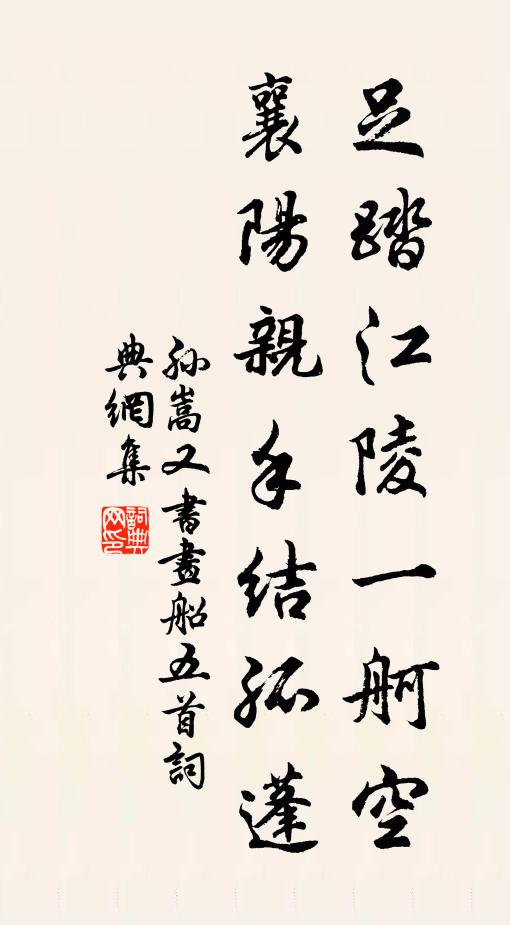 足踏江陵一舸空
襄陽親手結孤蓬
孙嵩又書畫船五首詞
典網集
詞典
网印